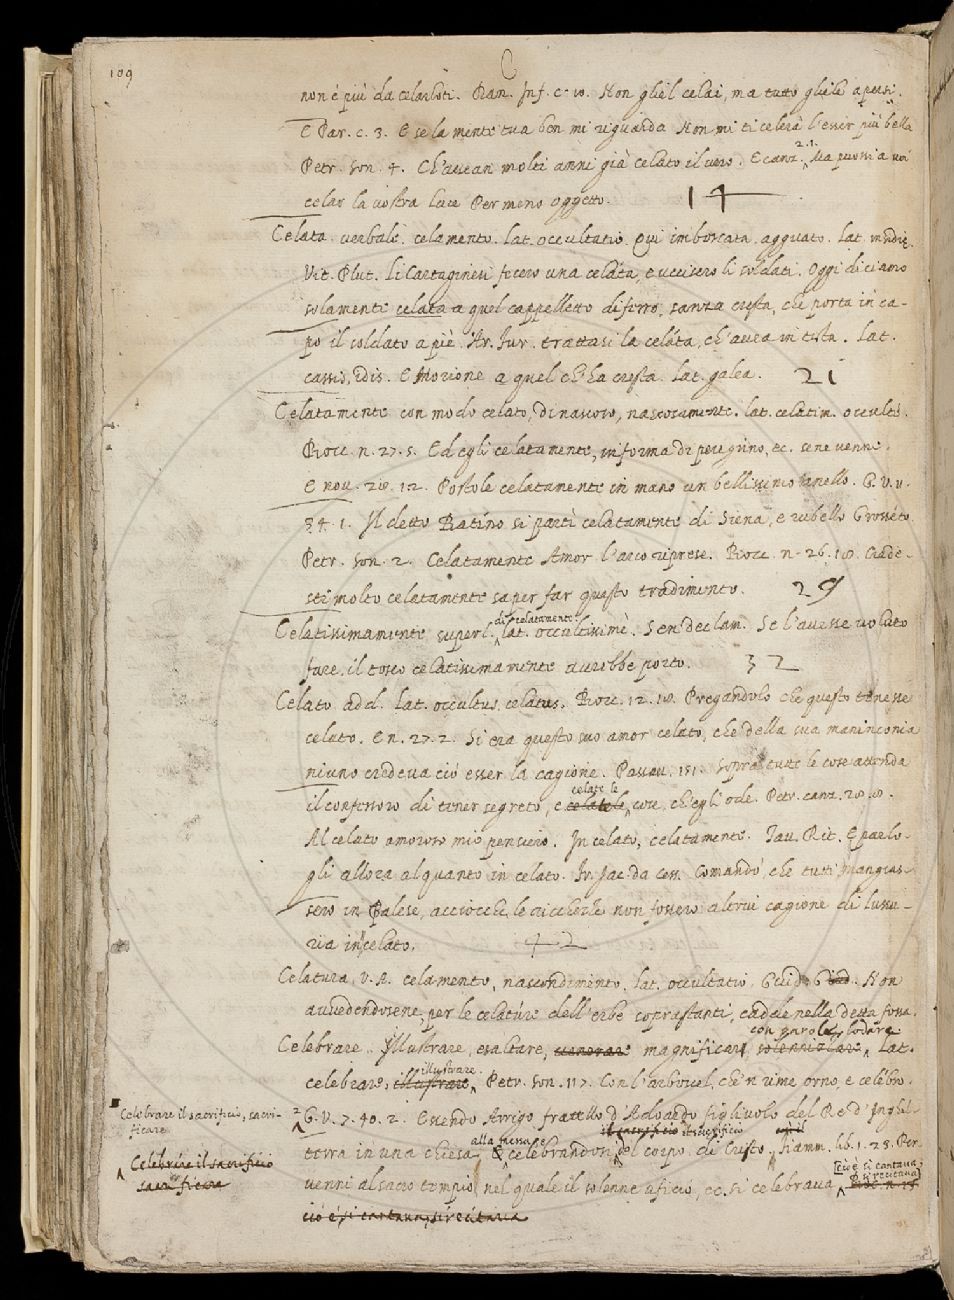 109
C
non è più da celarloti. Dan. Inf. c. 10. Non gliel celai, ma tutto gliele apersi.
E Par. c. 3. E se la mente tua ben mi riguarda Non mi ti celerà l'esser più bella
Petr. son. 4. Ch'avean molti anni già celato il vero. E canz. 2.1. Ma puossi a voi
celar la vostra luce Per meno oggetto. 14
Celata. verbale. celamento. lat. occultatio. Qui imboscata. agguato. lat. insidie.
Vit. Plut. Li Cartaginesi fecero una celáta, e uccisero li soldati. Oggi diciamo
solamente celata a quel cappelletto di ferro, sanza cresta, che porta in ca-
po il soldato a piè. Ar. Fur. trattasi la celáta, ch'avea in testa. lat.
cassis, idis. E Morione a quel ch'ha cresta. lat. galea. 21
Celatamente con modo celato, di nascoso, nascosamente. lat. celatim. occultè.
Bocc. n. 27. 5. Ed egli celatamente, in forma di peregrino, ec. sene venne.
E nov. 20. 12. Postole celatamente in mano un bellissimo anello. G. V. v.
34. 1. Il detto Batíno si partì celatamente di Siena, e rubello Grosseto
Petr. son. 2. Celatamente Amor l'arco riprese. Bocc. n. 26. 10. Crede-
sti molto celatamente saper far questo tradimento. 29
Celatissimamente superl. di celatamente lat. occultissimè. Sen. declam. Se l'avesse voluto
fare, il tosco celatissimamente avrebbe porto. 32
Celato. add. lat. occultus, celatus. Bocc. 12. 10. Pregandolo che questo tenesse
celato. E n. 27. 2. Si era questo suo amor celato, che della sua maninconia
niuno credeva ciò esser la cagione. Passav. 151. Sopra tutte le cose attenda
il confessoro di tener segreto, e celate le cose, ch'egli ode. Petr. canz. 20. 10.
Al celato amoroso mio pensiero. In celato, celatamente. Tav. Rit. E parlo-
gli allora alquanto in celato. In Jac. da Cess. Comandò, che tutti mangias-
sero in palese, acciocchè le ricchezze non fossero altrui cagione di lussu-
ria in celato. 42
Celatura. V. A. celamento, nascondimento. lat. occultatio. Guid. G. Non
avvedendosene per le celatúre dell'erbe soprastanti, cadde nella detta fossa.
Celebrare. Illustrare, esaltare, venerare magnificare solennizzare con parole, lodare. Lat.
celebrare, illustrare illustrare. Petr. son. 117. Con l'arboscel, che 'n rime orno, e celébro.
Celebrare il sacrificio, sacri-
ficare
2 G. V. 7. 40. 2. Essendo Arrigo fratello d'Adoardo figliuolo del Re d'Inghil-
terra in una chiesa, alla messa, e celebrandosi il sacrificio del corpo di Cristo. Fiamm. lib. 1. 23. Per-
Celebrare il sacrificio
sacrificare
venni al sacro tempio nel quale il solenne uficio, ec. si celebrava, cioè si cantava, si recitava
ciò è si cantava, si recitava